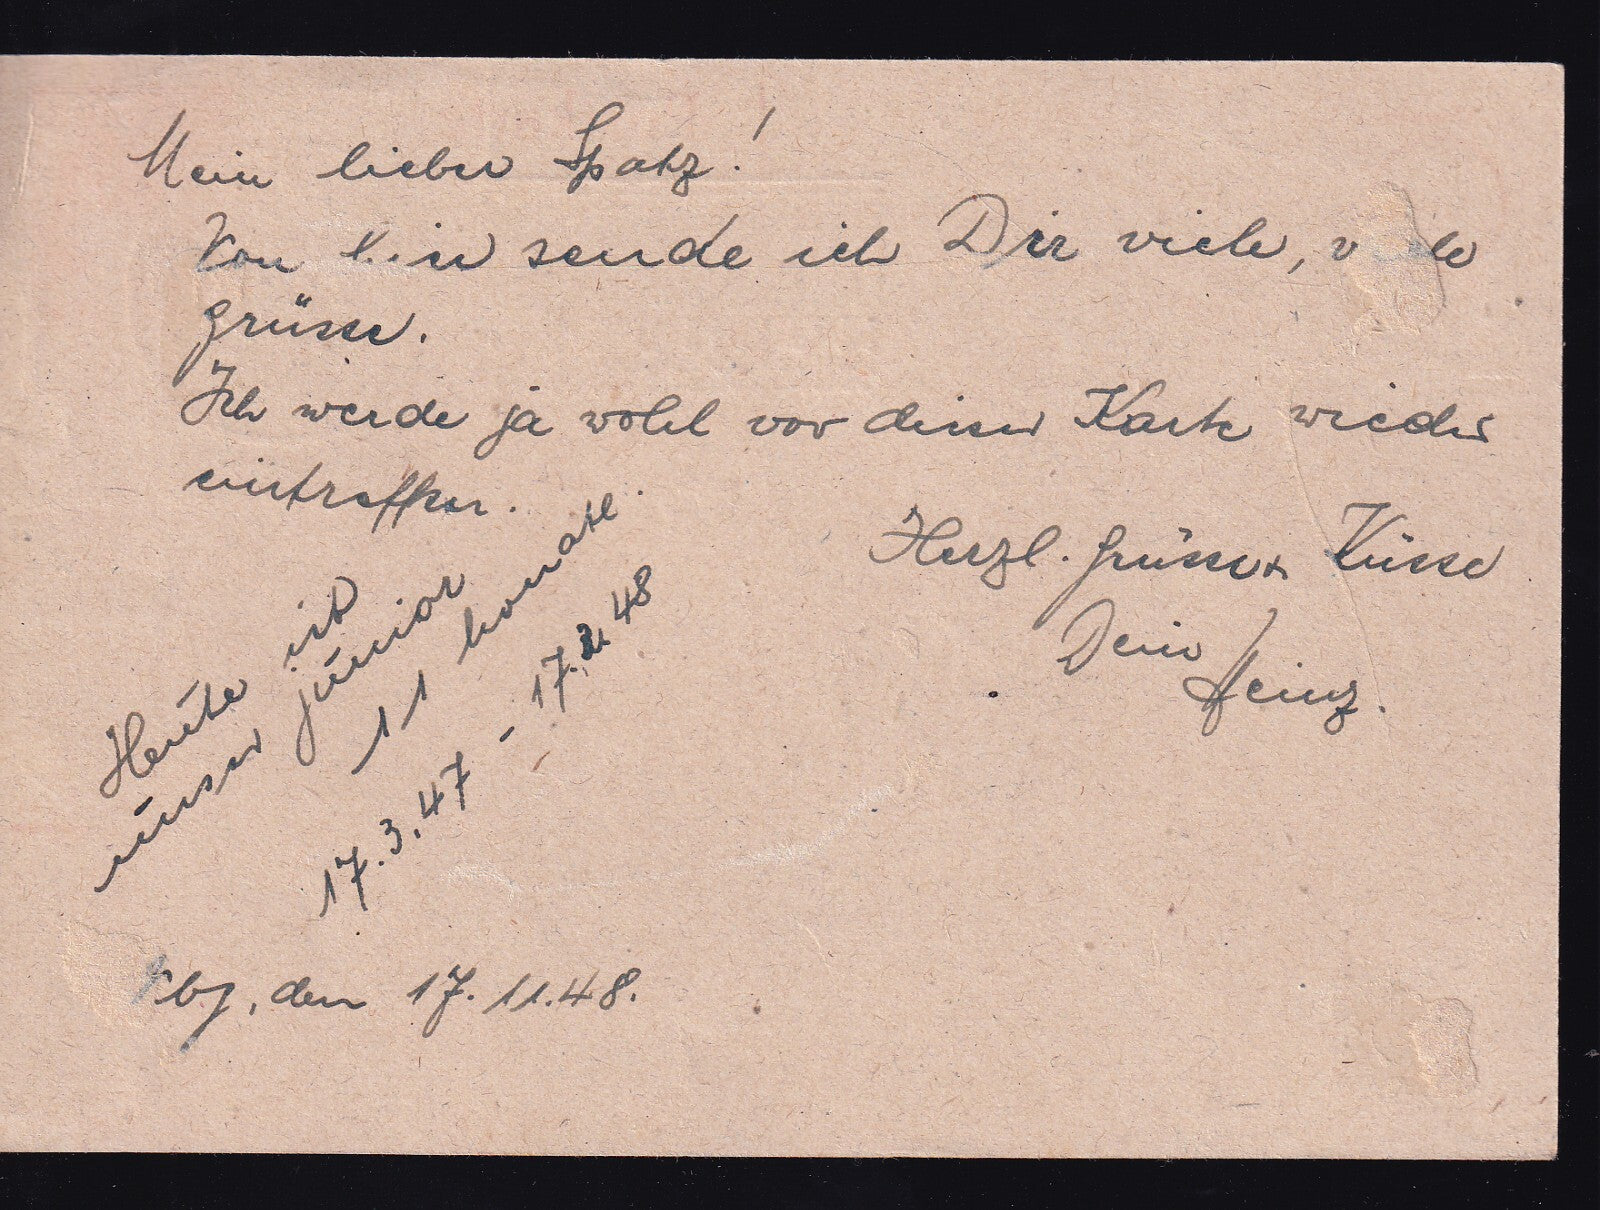 Mein lieber Spatz!
Von hier sende ich Dir viele, viele
Grüsse.
Ich werde ja wohl vor dieser Karte wieder
eintreffen.
Herzl. Grüsse + Küsse
Dein Heinz.
Heute ist
unser Junior
11 Monate.
17.3.47 - 17.2.48
den 17.11.48.